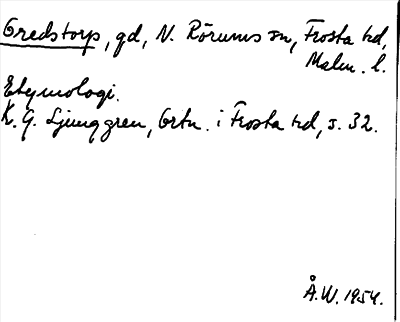 Gredstorp, gd, N. Rörums sn, Frosta hd,
Malm. l.
Etymologi.
K. G. Ljunggren, Ortn. i Frosta hd, s. 32.
Å.W. 1954.